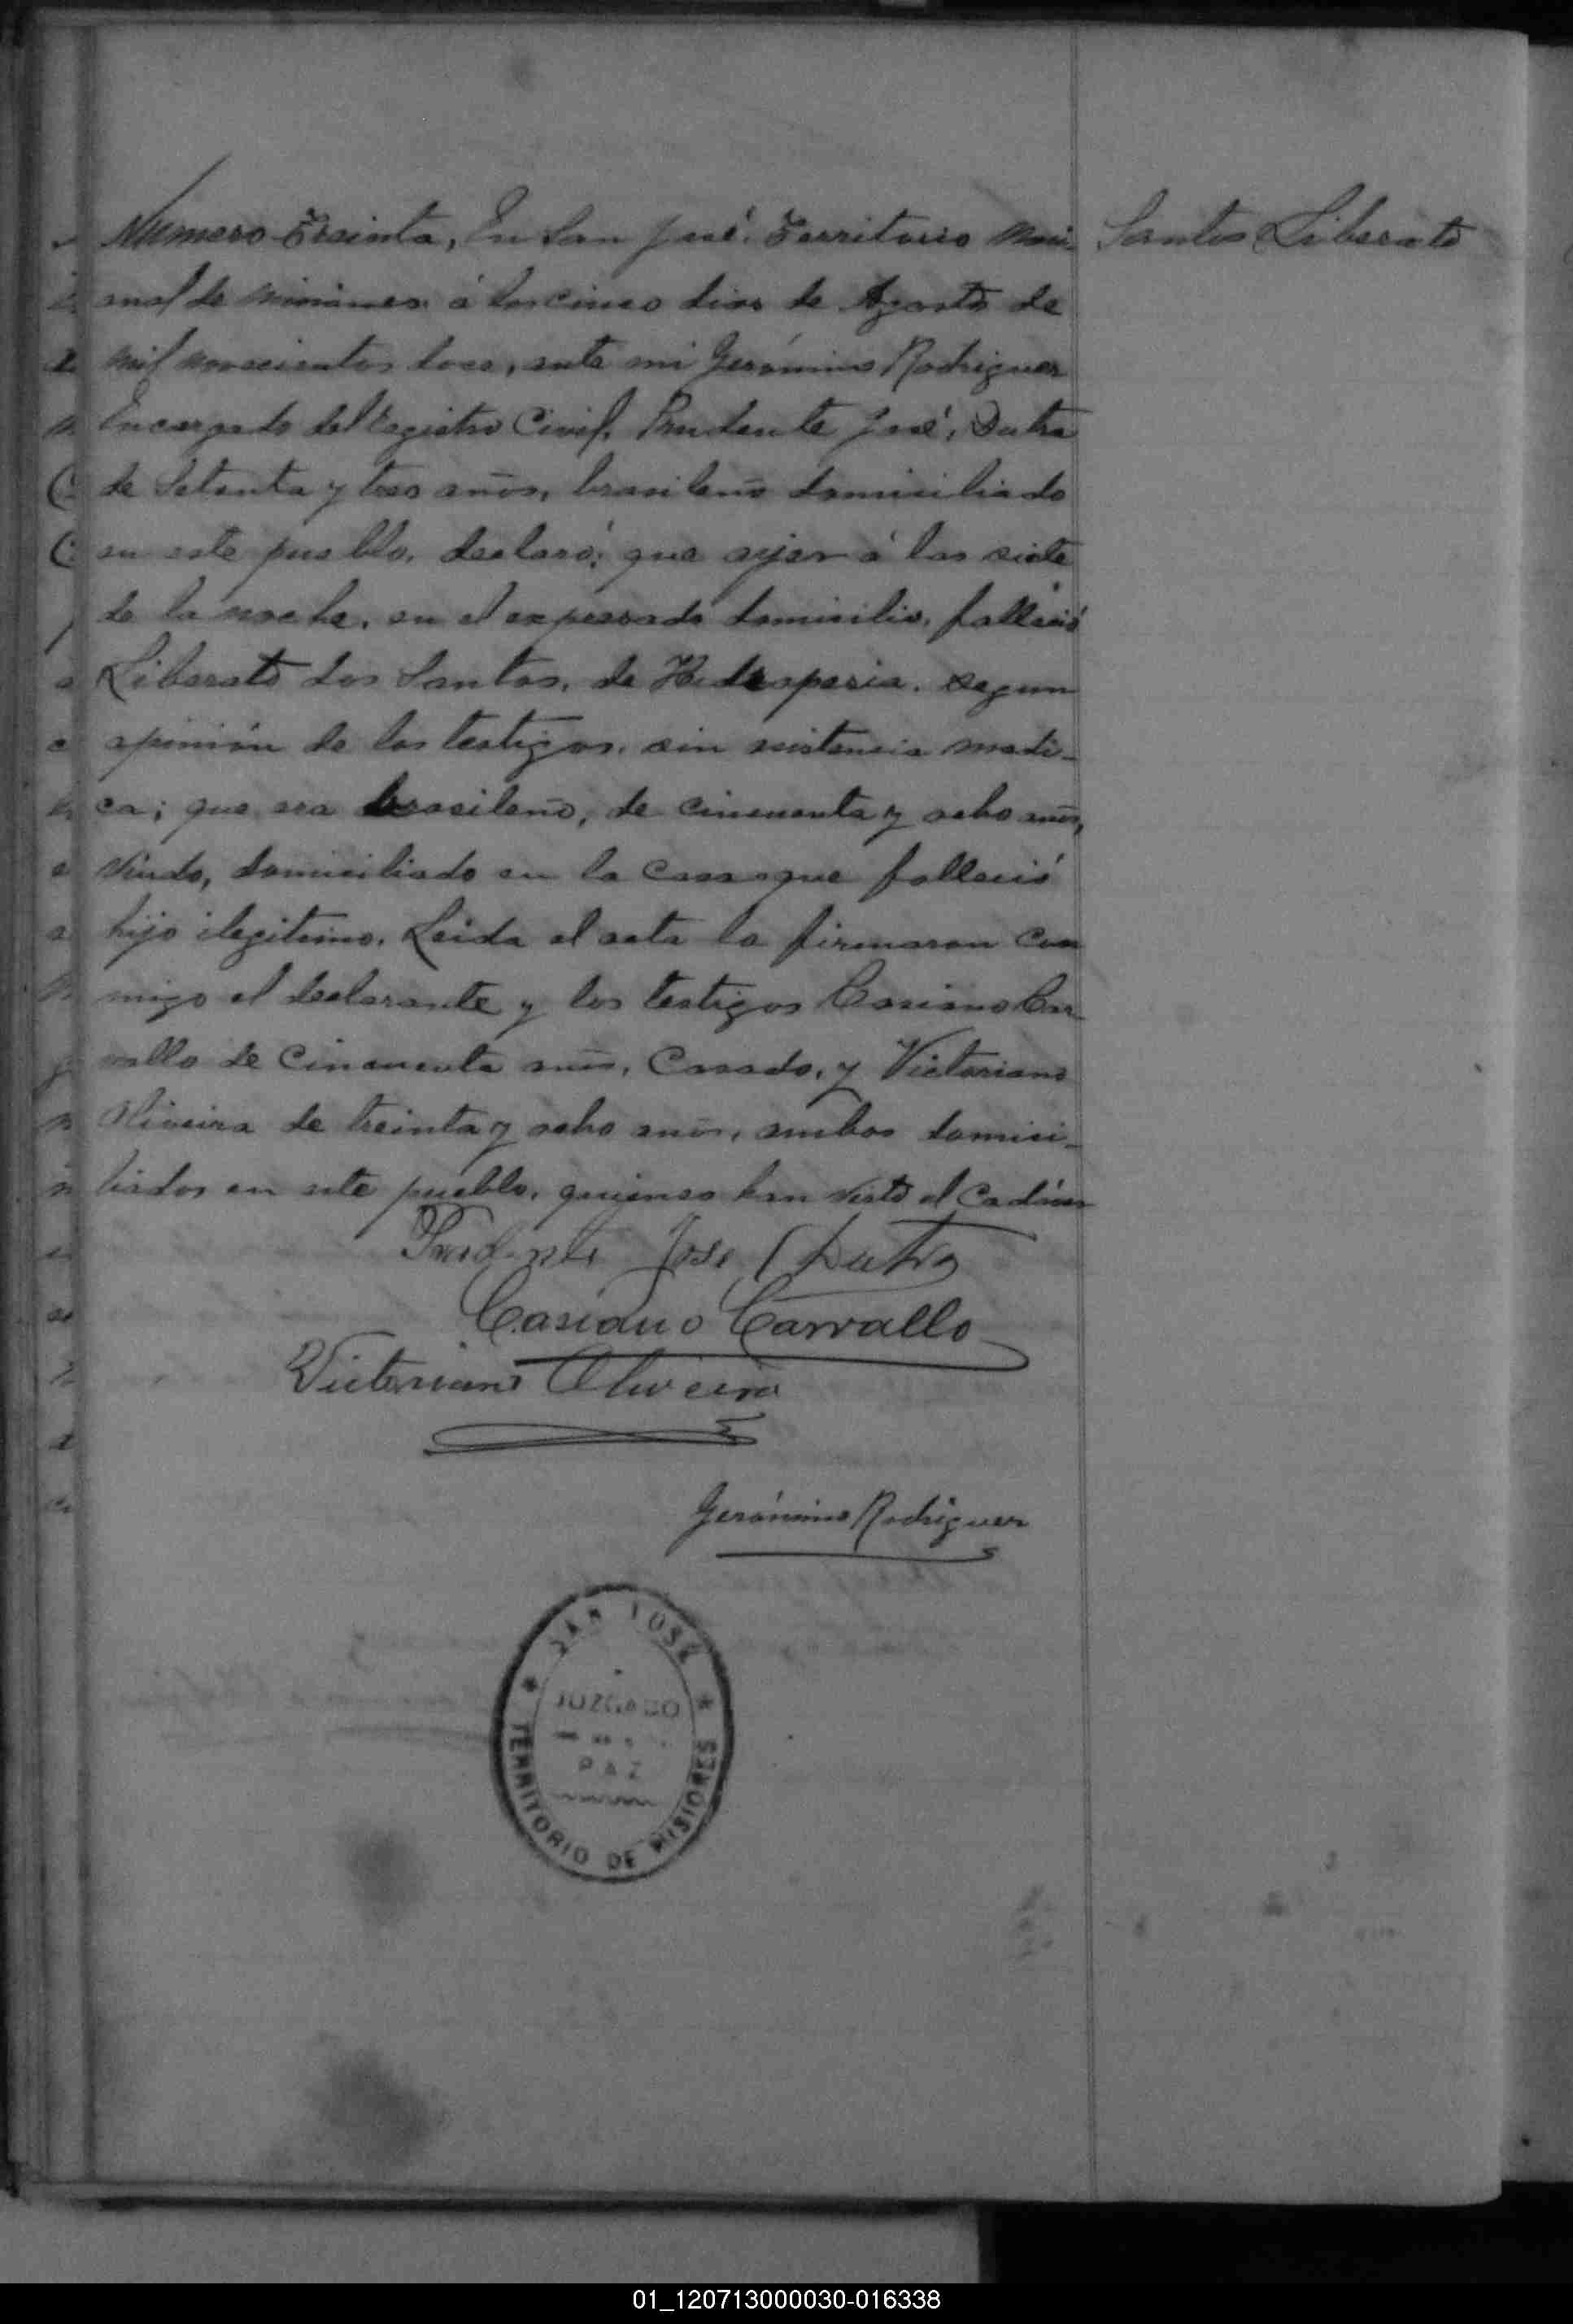 Numero Treinta, En San José, Territorio Naci-
onal de Misiones á los cinco dias de Agosto de
mil novecientos doce, ante mi Gerónimo Rodriguez
Encargado del Registro Civil, Prudente José, Dutra
de Setenta y tres años, brasileño domiciliado
en este pueblo, declaró; que ayer á las siete
de la noche, en el expresado domicilio, falleció
Liberato dos Santos, de Hidropesia, segun
opinión de los testigos, sin asistencia medi-
ca; que era brasileño, de cincuenta y ocho años,
Viudo, domiciliado en la casa que falleció
hijo ilegitimo. Leida el acta la firmaron con
migo el declarante y los testigos Casiano Car
vallo de Cincuenta años, Casado, y Victoriano
Oliveira de treinta y ocho años, ambos domici-
liados en este pueblo, quienes han visto el Cadáver
Prudente José Dutra
Casiano Carvallo
Victoriano Oliveira
Gerónimo Rodriguez
Santos Liberato
SAN JOSÉ
JUZGADO
PAZ
TERRITORIO DE MISIONES
01_120713000030-016338